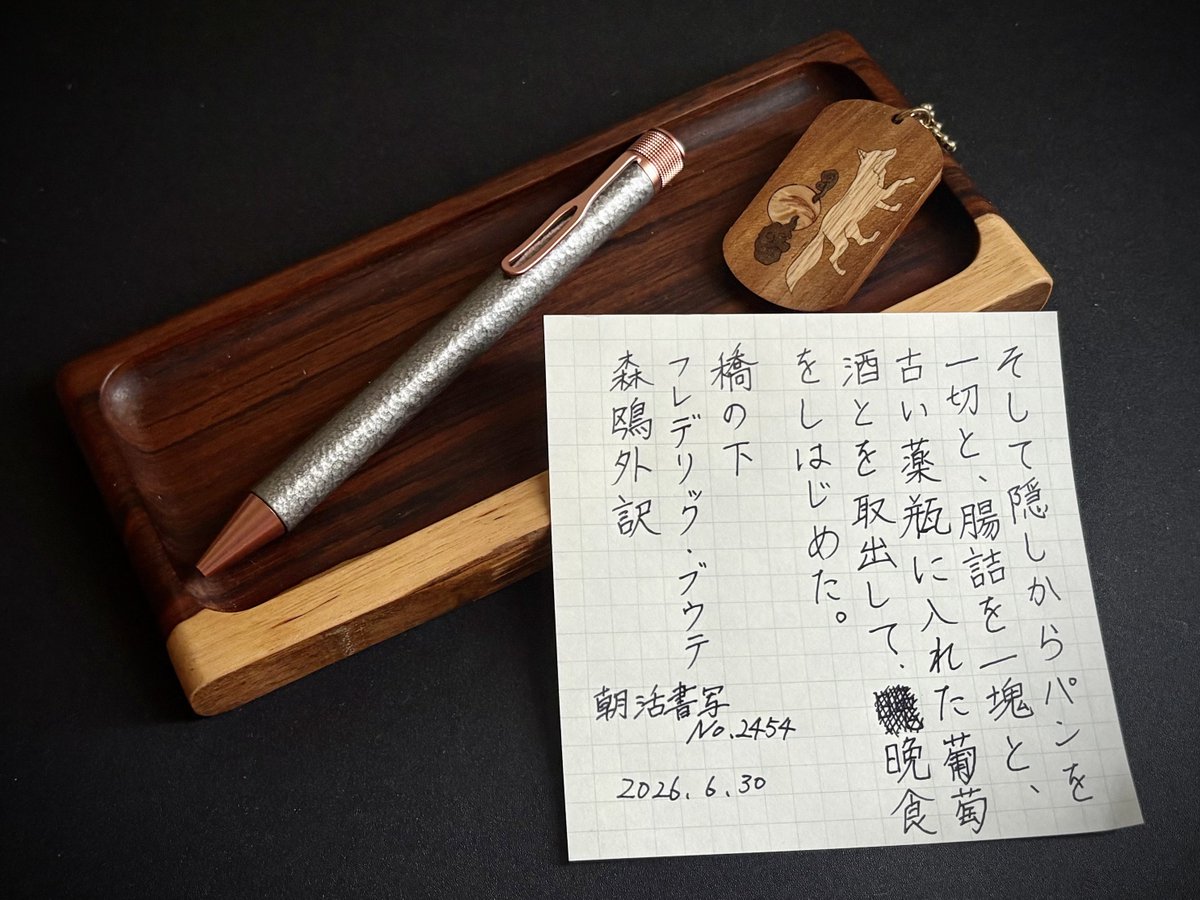 そして隠しからパンを
一切と、腸詰を一塊と、
古い薬瓶に入れた葡萄
酒とを取出して、晩食
をしはじめた。
橋の下
フレデリック・ブウテ
森鴎外訳
朝活書写
No.2454
2026.6.30